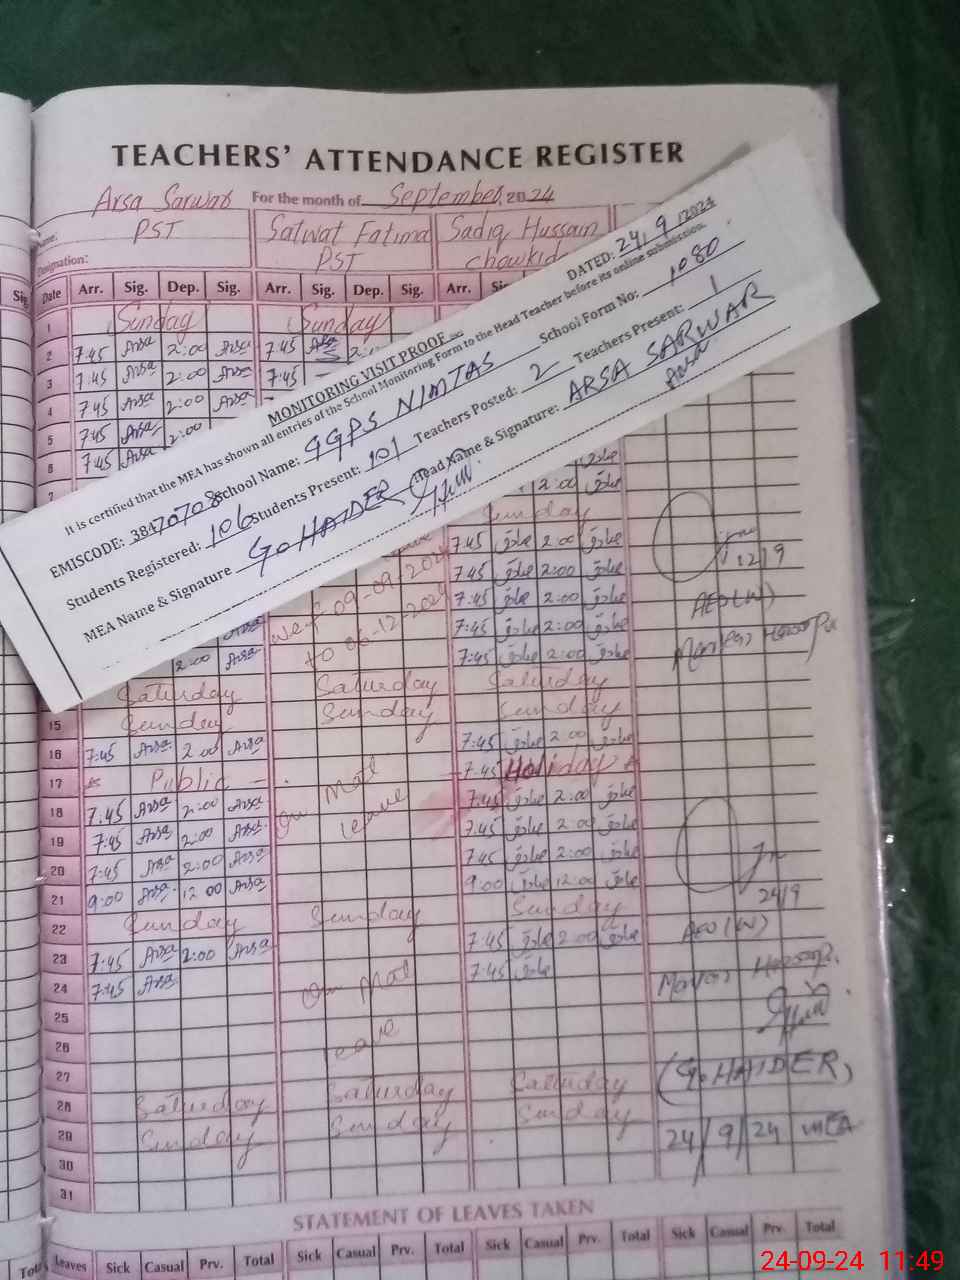 TEACHERS' ATTENDANCE REGISTER
Arsa Sarwat For the month of September, 2024
Name:
PST Satwat Fatima Sadiq Hussain
Designation: PST chowkid
Sig. Date Arr. Sig. Dep. Sig. Arr. Sig. Dep. Sig. Arr.
1 Sunday Sunday
2 7:45 Arsa 2:00 Arsa 7:45
3 7:45 Arsa 2:00 Arsa 7:45
4 7:45 Arsa 2:00 Arsa
5 7:45 Arsa 2:00
6 7:45 Arsa
7
MONITORING VISIT PROOF
DATED: 24/9/2024
It is certified that the MEA has shown all entries of the School Monitoring Form to the Head Teacher before its online submission.
EMISCODE: 38470708 School Name: GGPS NIMTAS School Form No: 1080
Students Registered: 106 Students Present: 101 Teachers Posted: 2 Teachers Present: 1
MEA Name & Signature G. HAIDER Head Name & Signature: ARSA SARWAR
Arsa
2:00 صادق
Sunday
7:45 صادق 2:00 صادق
7:45 صادق 2:00 صادق 12/9
7:45 صادق 2:00 صادق AEO(W)
Arsa w.e.f 09-09-2024 7:45 صادق 2:00 صادق
2:00 Arsa to 06-12-2024 7:45 صادق 2:00 صادق
Saturday Saturday Saturday
15 Sunday Sunday Sunday
16 7:45 Arsa 2:00 Arsa 7:45 صادق 2:00 صادق
17 Public 7:45 Holiday
18 7:45 Arsa 2:00 Arsa On Mat 7:45 صادق 2:00 صادق
19 7:45 Arsa 2:00 Arsa leave 7:45 صادق 2:00 صادق
20 7:45 Arsa 2:00 Arsa 7:45 صادق 2:00 صادق
21 9:00 Arsa 12:00 Arsa 9:00 صادق 12:00 صادق
22 Sunday Sunday Sunday 24/9
23 7:45 Arsa 2:00 Arsa 7:45 صادق 2:00 صادق AEO(W)
24 7:45 Arsa On Mat 7:45 صادق
25
26 leave
27 (G. HAIDER)
28 Saturday Saturday Saturday
29 Sunday Sunday Sunday 24/9/24 MEA
30
31
STATEMENT OF LEAVES TAKEN
Total Leaves Sick Casual Prv. Total Sick Casual Prv. Total Sick Casual Prv. Total Sick Casual Prv. Total
24-09-24 11:49